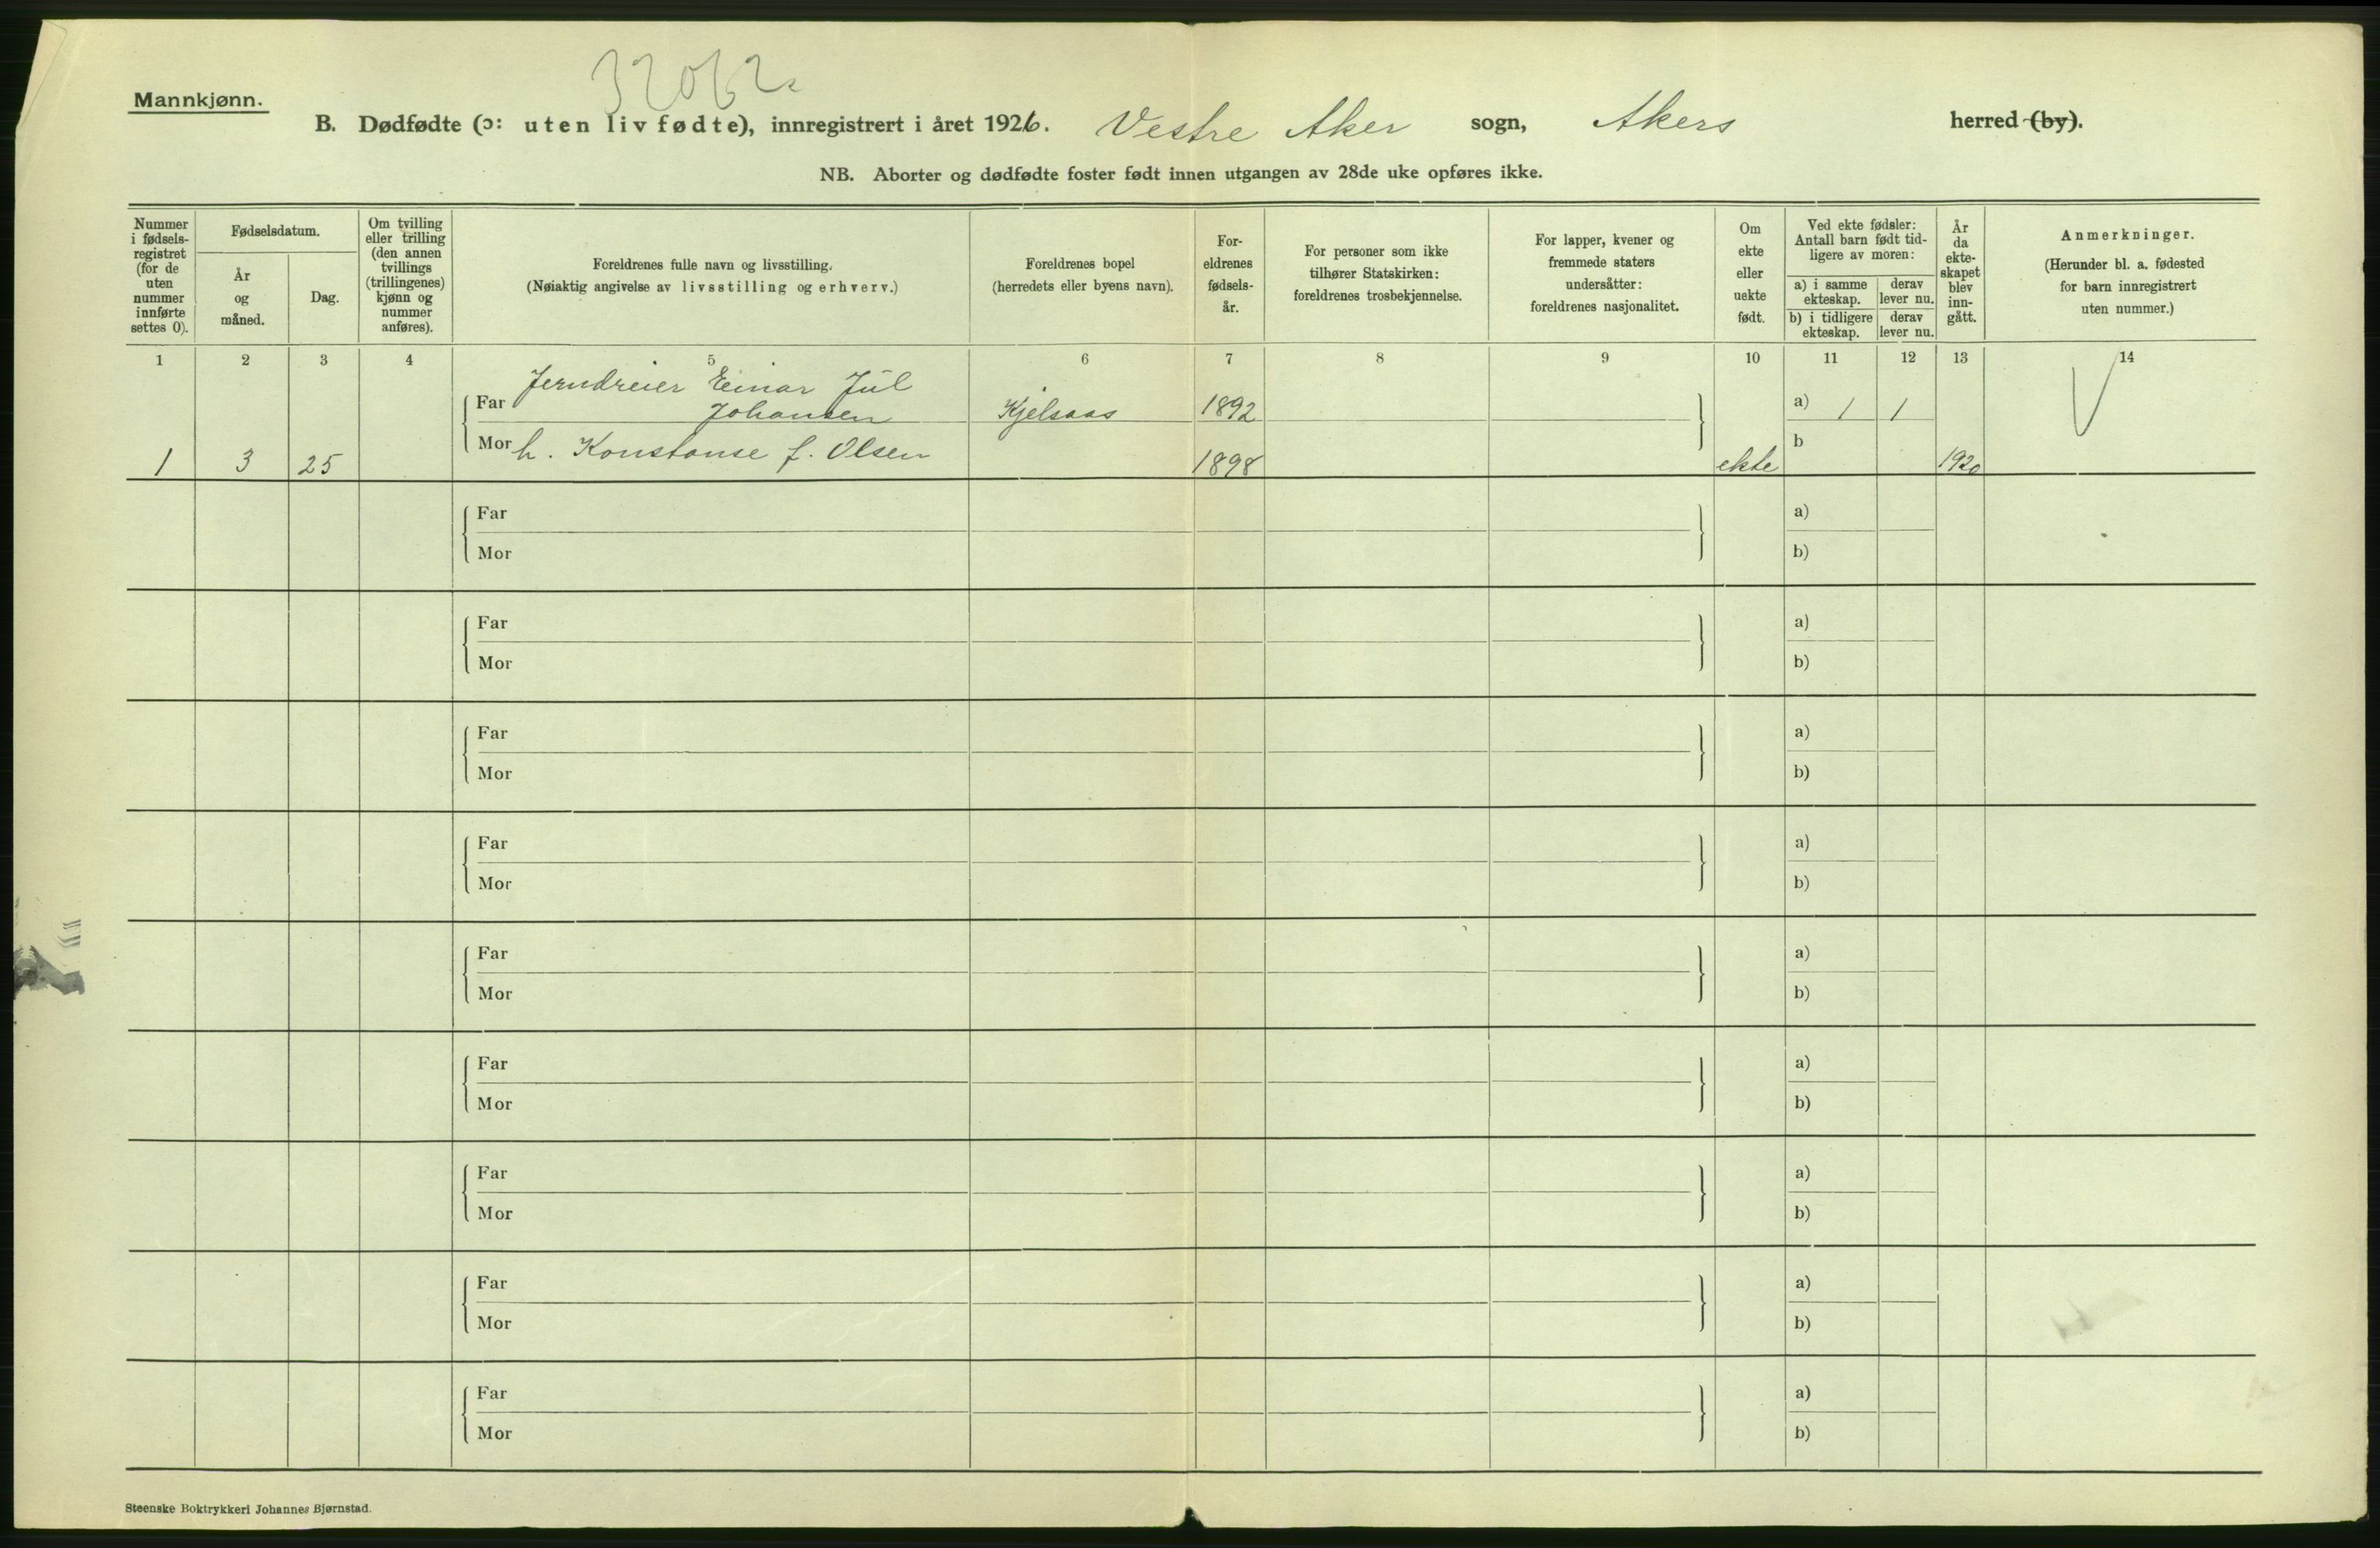 Mannkjønn.
B. Dødfødte (ɔ: uten liv fødte), innregistrert i året 1926. Vestre Aker sogn, Akers herred (by).
NB. Aborter og dødfødte foster født innen utgangen av 28de uke opføres ikke.
Nummer i fødsels-registret (for de uten nummer innførte settes 0).
Fødselsdatum.
År og måned.
Dag.
Om tvilling eller trilling (den annen tvillings (trillingenes) kjønn og nummer anføres).
Foreldrenes fulle navn og livsstilling.
(Nøiaktig angivelse av livsstilling og erhverv.)
Foreldrenes bopel
(herredets eller byens navn).
For-eldrenes fødsels-år.
For personer som ikke tilhører Statskirken: foreldrenes trosbekjennelse.
For lapper, kvener og fremmede staters undersåtter: foreldrenes nasjonalitet.
Om ekte eller uekte født.
Ved ekte fødsler: Antall barn født tid-ligere av moren:
a) i samme ekteskap.
derav lever nu.
b) i tidligere ekteskap.
derav lever nu.
År da ekte-skapet blev inn-gått.
Anmerkninger.
(Herunder bl. a. fødested for barn innregistrert uten nummer.)
1 2 3 4 5 6 7 8 9 10 11 12 13 14
Jerndreier Einar Jul
Far Johansen Kjelsaas 1892 a) 1 1
Mor h. Konstanse f. Olsen b
1 3 25 1898 ekte 1920
Far a)
Mor b)
Far a)
Mor b)
Far a)
Mor b)
Far a)
Mor b)
Far a)
Mor b)
Far a)
Mor b)
Far a)
Mor b)
Far a)
Mor b)
Far a)
Mor b)
Steenske Boktrykkeri Johannes Bjørnstad.